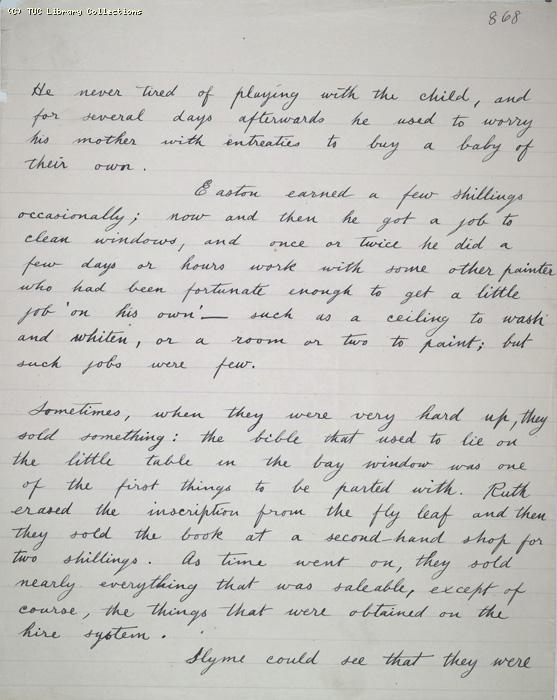 (C) TUC Library Collections
868
He never tired of playing with the child, and
for several days afterwards he used to worry
his mother with entreaties to buy a baby of
their own.
Easton earned a few shillings
occasionally; now and then he got a job to
clean windows, and once or twice he did a
few days or hours work with some other painter
who had been fortunate enough to get a little
job 'on his own' — such as a ceiling to wash
and whiten, or a room or two to paint; but
such jobs were few.
Sometimes, when they were very hard up, they
sold something: the bible that used to lie on
the little table in the bay window was one
of the first things to be parted with. Ruth
erased the inscription from the fly leaf and then
they sold the book at a second-hand shop for
two shillings. As time went on, they sold
nearly everything that was saleable, except of
course, the things that were obtained on the
hire system.
Slyme could see that they were